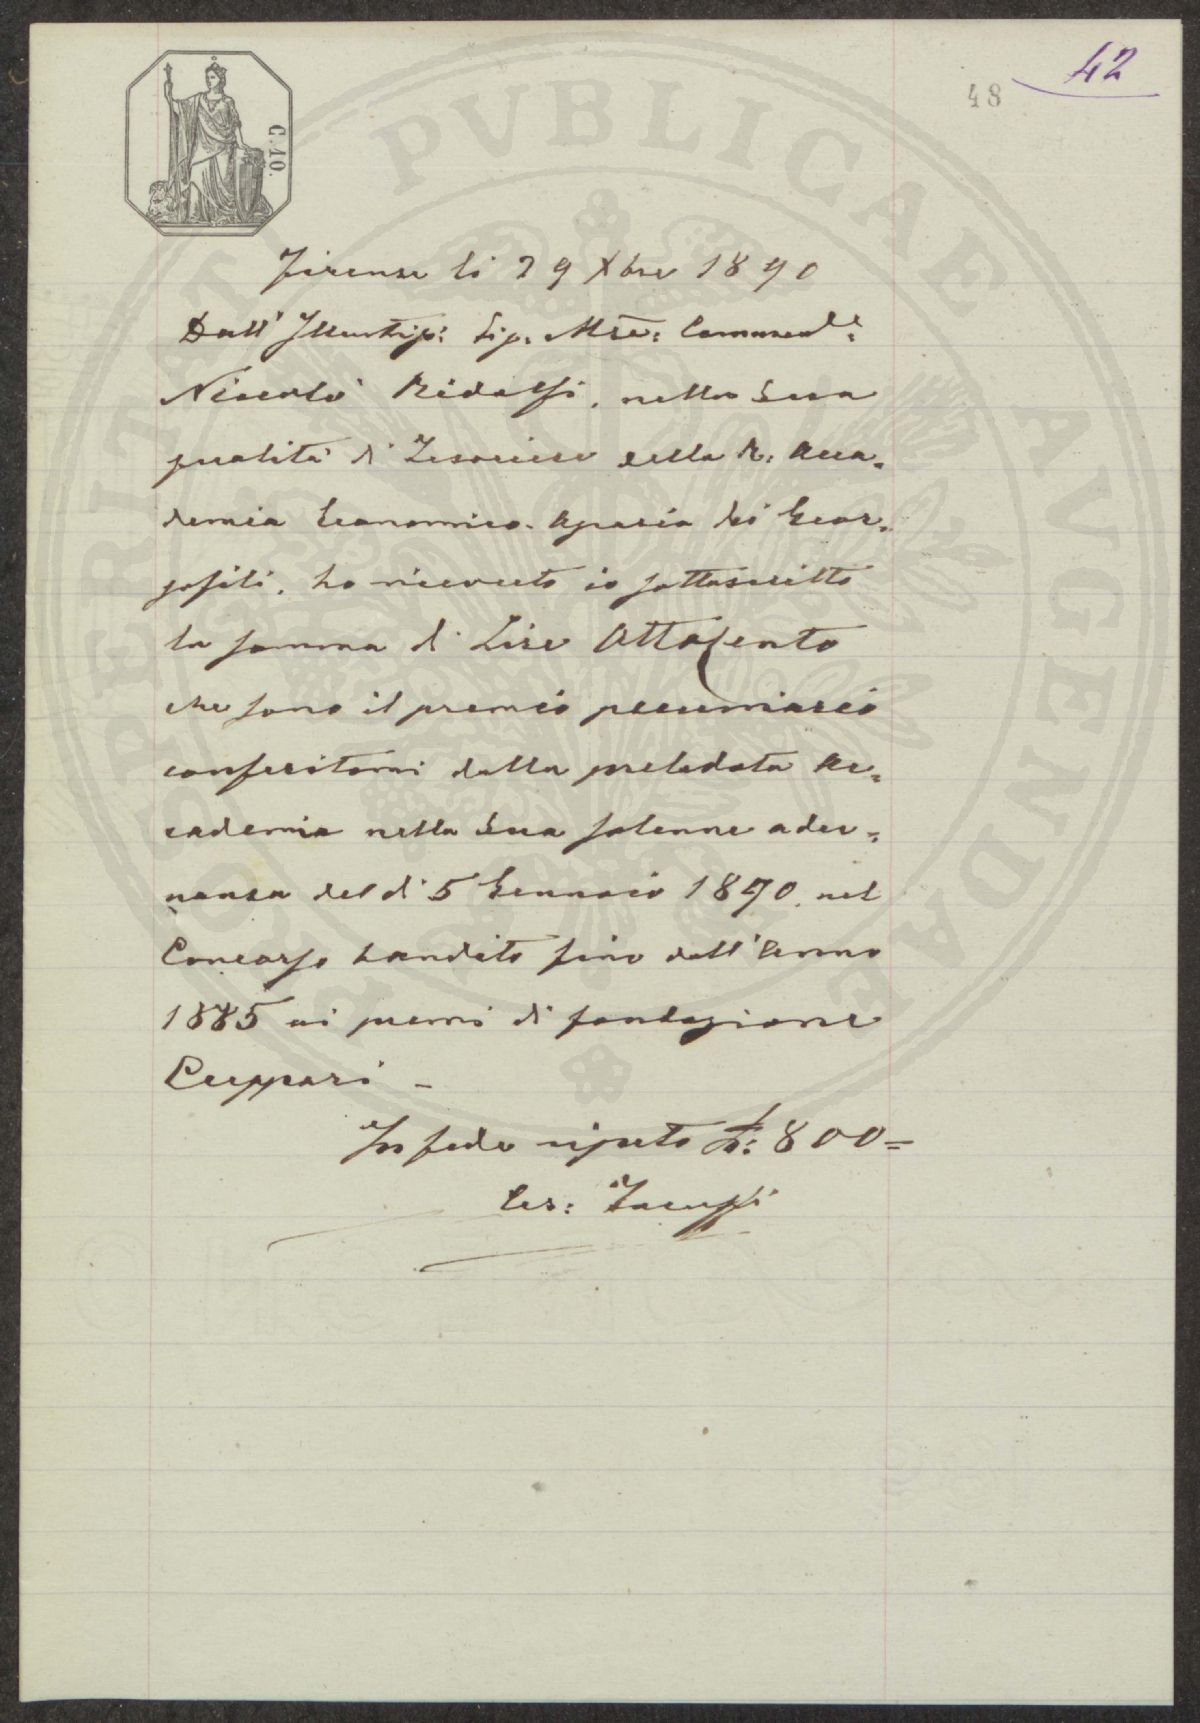 42
48
C. 10.
Firenze li 29 Xbre 1890
Dall' Illustriss: Sig. Mse: Commend.e:
Niccolò Ridolfi, nella Sua
qualità di Tesoriere della R: Acca=
demia Economico-Agraria dei Geor=
gofili, ho ricevuto io sottoscritto
la somma di Lire Ottocento
che sono il premio pecuniario
conferitomi dalla prelodata Ac=
cademia nella Sua solenne adu=
nanza del dì 5 Gennaio 1890, nel
Concorso bandito fino dall' Anno
1885 ai premi di fondazione
Cuppari -
In fede riputo £: 800=
Ces:
PROSPERITATI PVBLICAE AVGENDAE